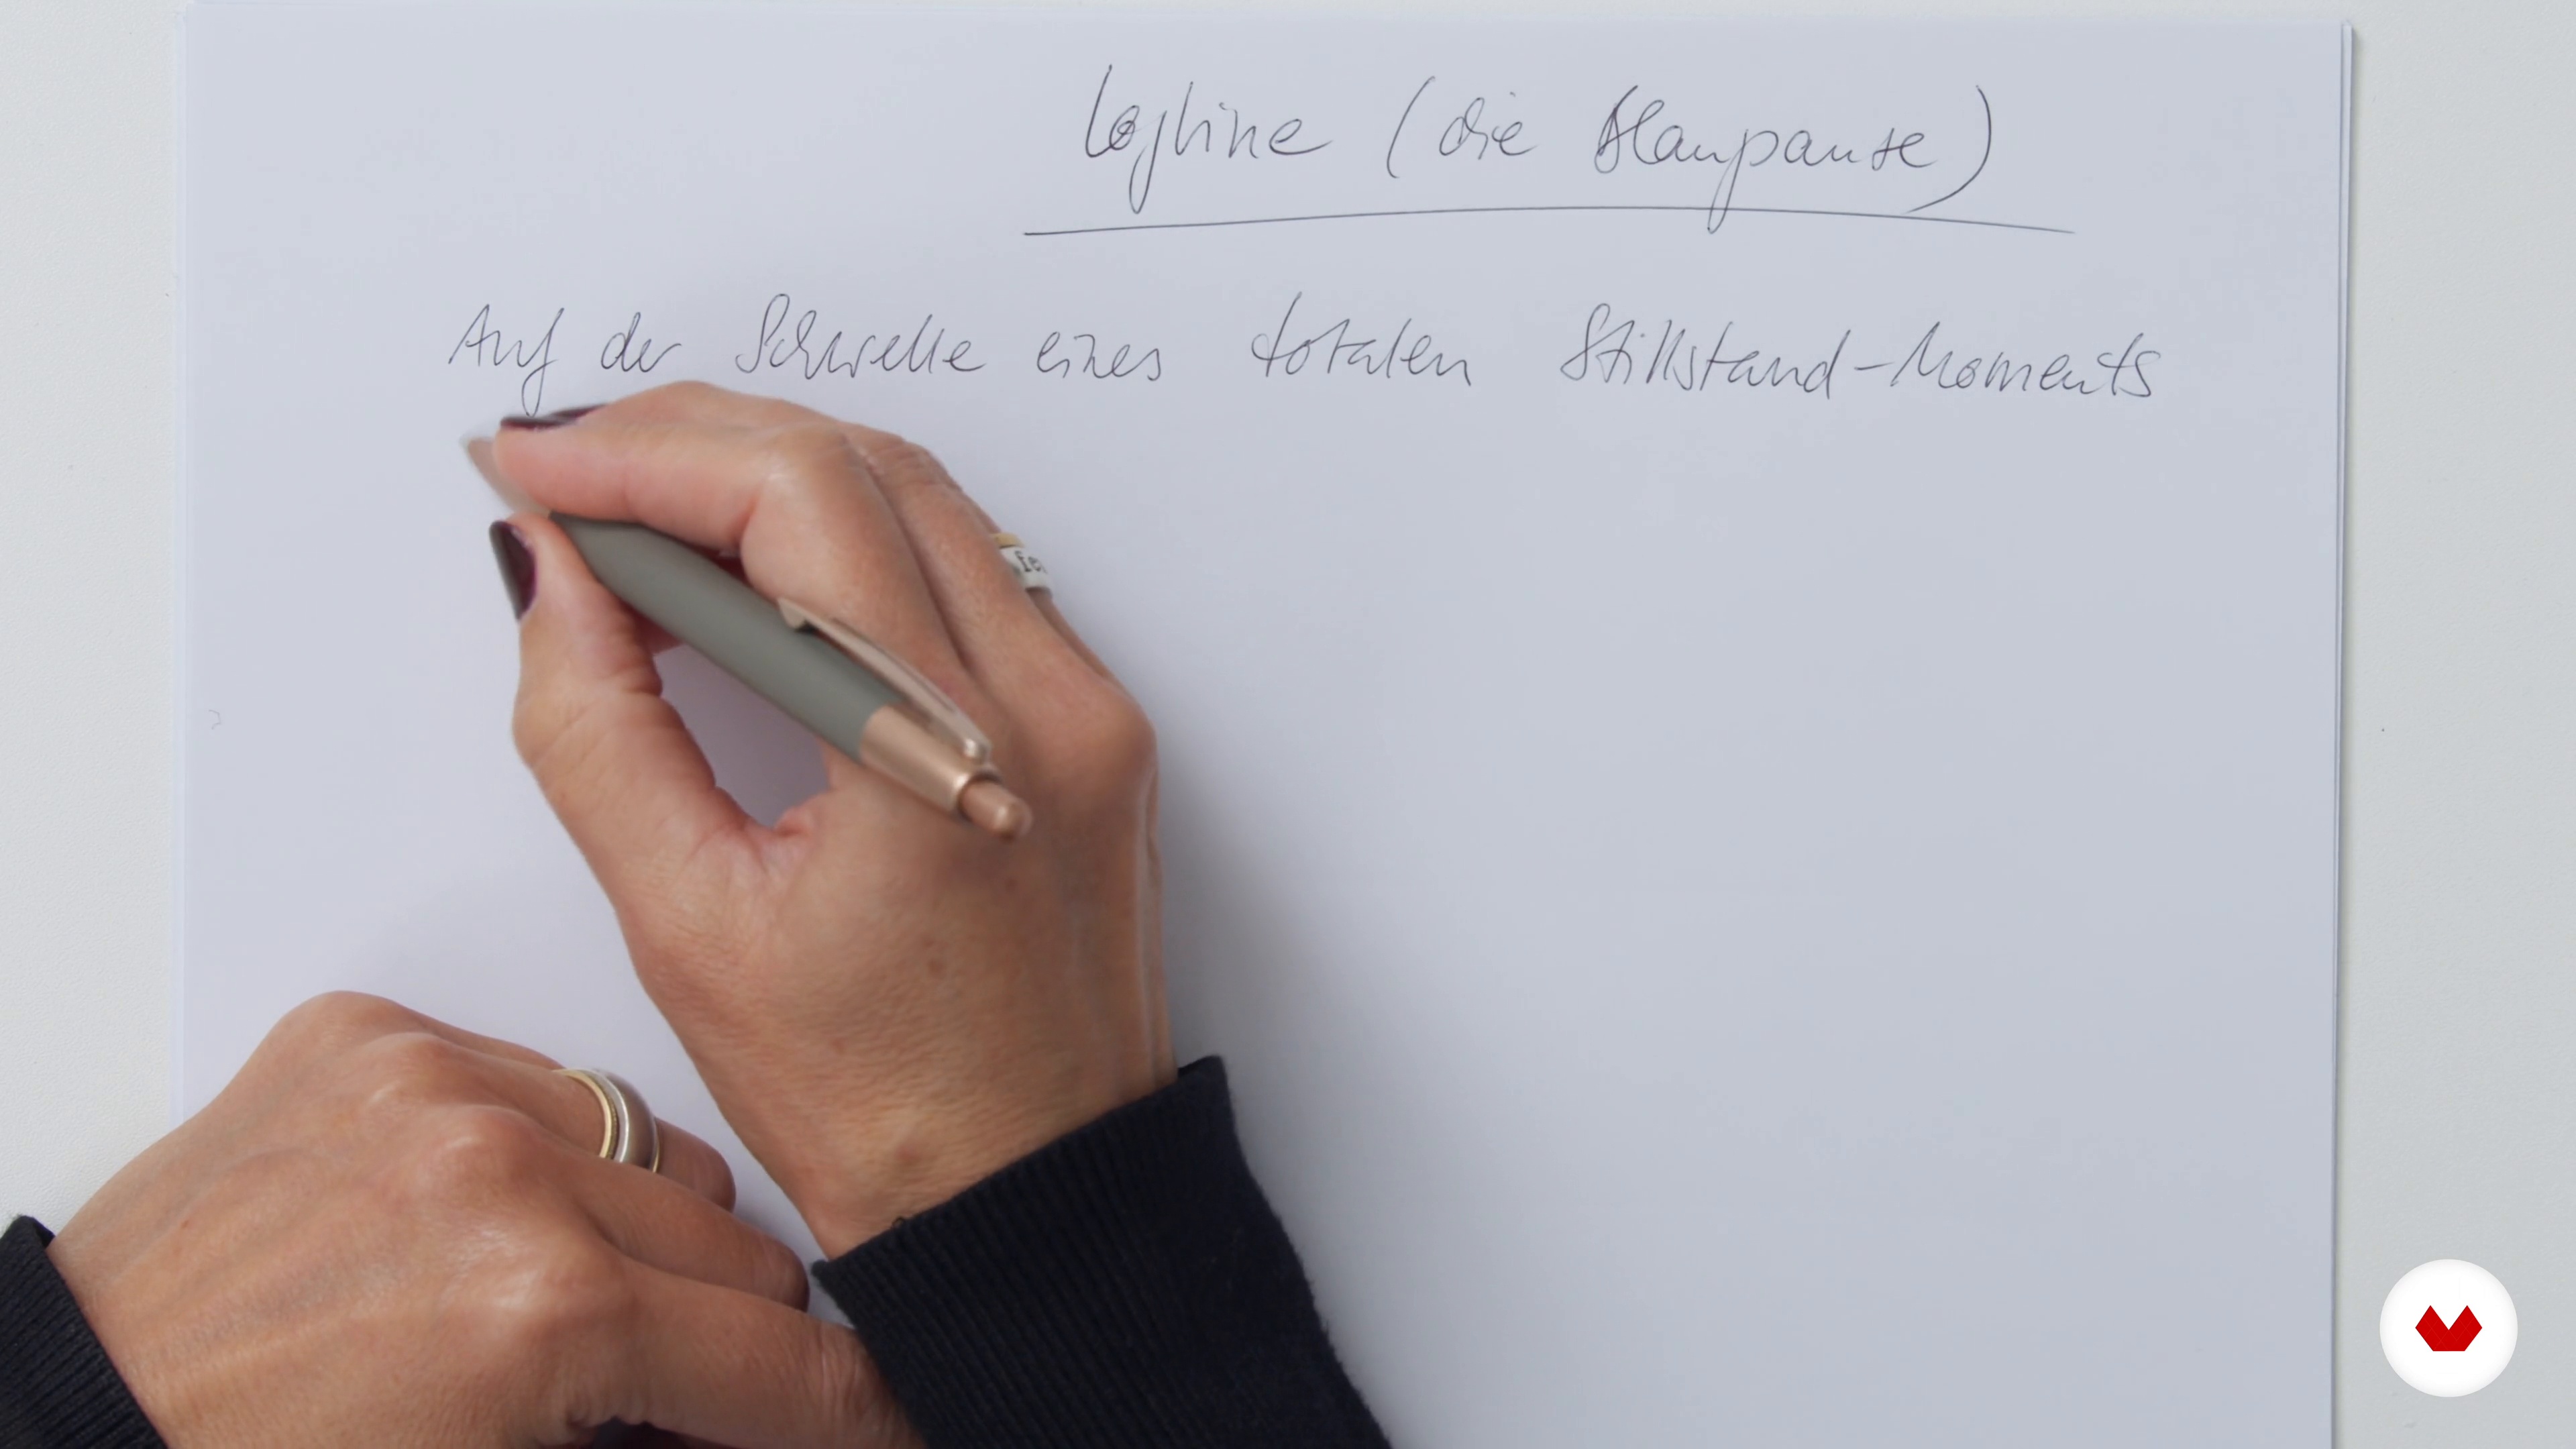 Logline (die Blaupause)
Auf der Schwelle eines totalen Stillstand-Moments